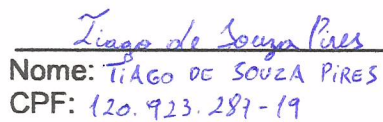 Tiago de Souza Pires
Nome: TIAGO DE SOUZA PIRES
CPF: 120.923.287-19